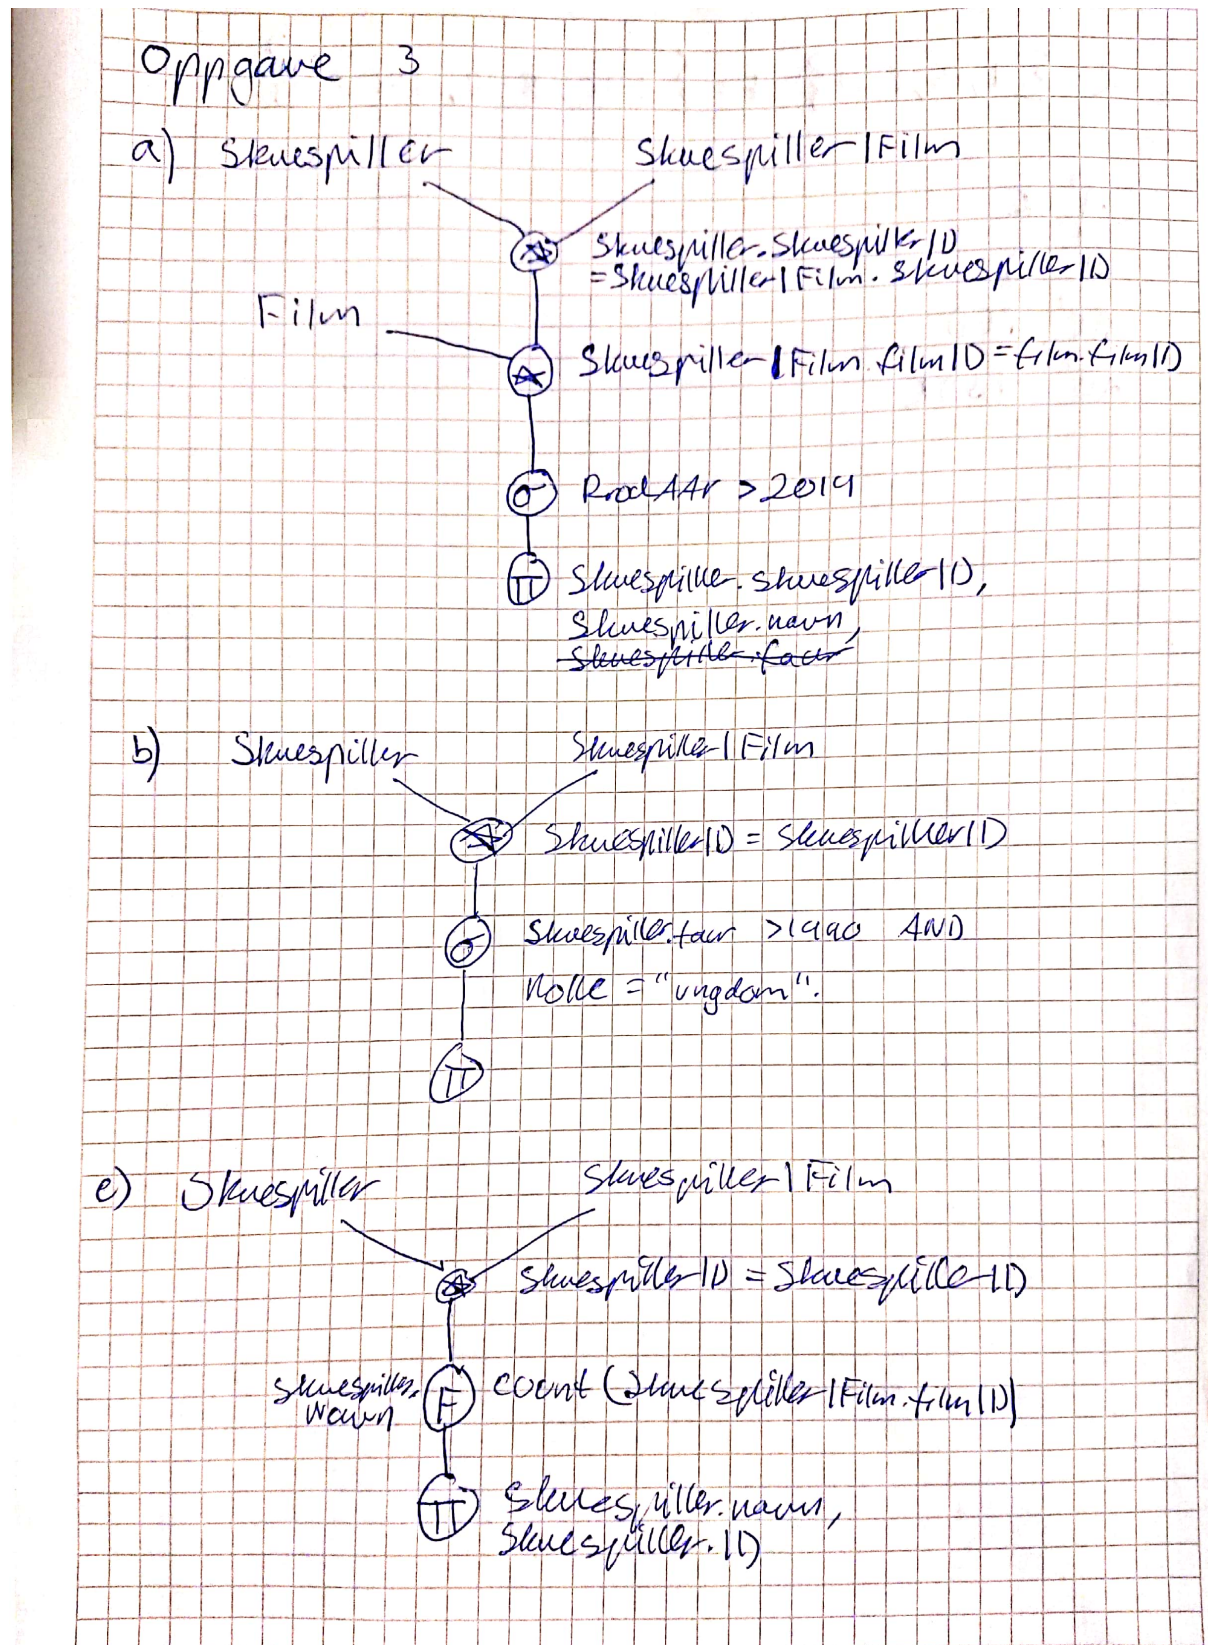 Oppgave 3
a) Skuespiller SkuespillerIFilm
Skuespiller.SkuespillerID
=SkuespillerIFilm.SkuespillerID
Film
SkuespillerIFilm.filmID = film.filmID
σ ProdAAr > 2014
π Skuespiller.skuespillerID,
Skuespiller.navn,
b) Skuespiller SkuespillerIFilm
SkuespillerID = SkuespillerID
σ Skuespiller.faar >1990 AND
Rolle = "ungdom".
π
e) Skuespiller SkuespillerIFilm
SkuespillerID = SkuespillerID
Skuespiller. F count(SkuespillerIFilm.filmID)
Navn
π Skuespiller.navn,
Skuespiller.ID